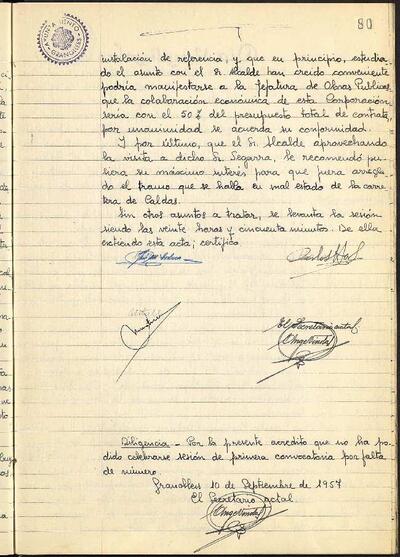 80
AJUNTAMIENTO
GRANOLLERS
instalación de referencia; y que en principio, estudia-
do el asunto con el Sr. Alcalde han creido conveniente
podria manifestarse a la Jefatura de Obras Publicas
que la colaboración económica de esta Corporación
seria con el 50% del presupuesto total de contrata,
por unanimidad se acuerda su conformidad.
Y por último, que el Sr. Alcalde aprovechando
la visita a dicho Sr. Segarra, le recomendó pu-
siera su máximo interés para que fuera arregla-
do el tramo que se halla en mal estado de la carre-
tera de Caldas.
Sin otros asuntos a tratar, se levanta la sesión
siendo las veinte horas y cincuenta minutos. De ella
extiendo esta acta; certifico.
El Secretario actal.
Diligencia - Por la presente acredito que no ha po-
dido celebrarse sesión de primera convocatoria por falta
de número.
Granollers 10 de Septiembre de 1957
El Secretario actal.